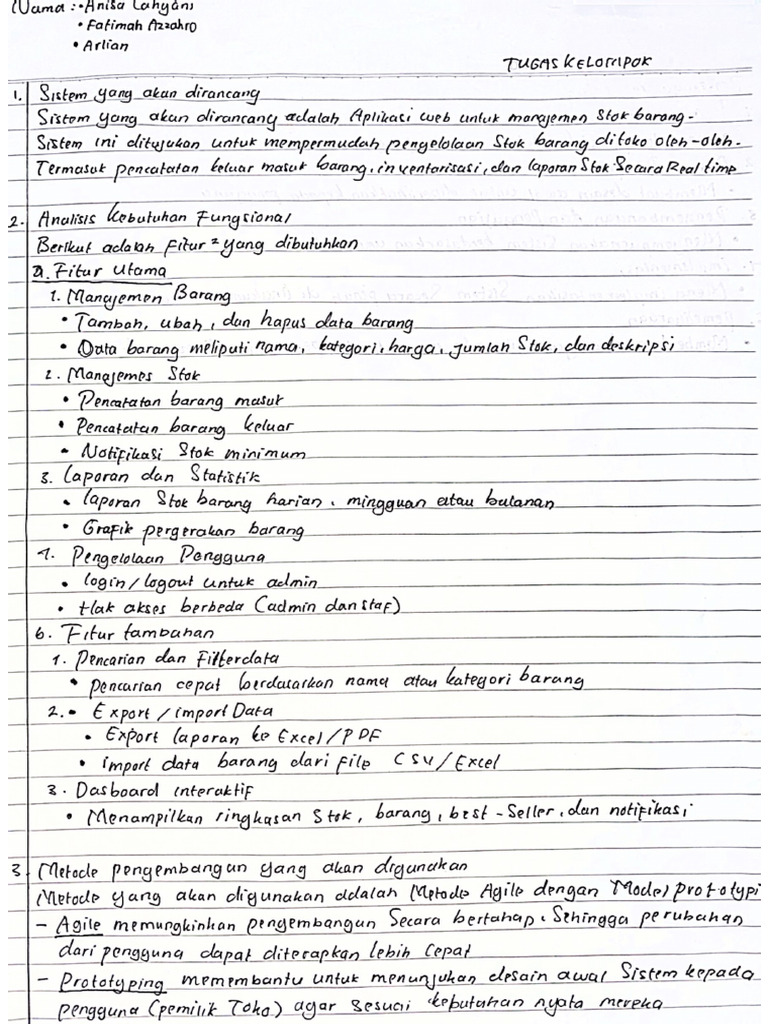 Nama : • Anisa Cahyani
• Fatimah Azzahro
• Arlian
TUGAS KELOMPOK
1. Sistem yang akan dirancang
Sistem yang akan dirancang adalah Aplikasi web untuk manajemen Stok barang.
Sistem ini ditujukan untuk mempermudah pengelolaan Stok barang ditoko oleh-oleh.
Termasuk pencatatan keluar masuk barang, inventarisasi, dan laporan Stok Secara Real time
2. Analisis Kebutuhan Fungsional
Berikut adalah Fitur² yang dibutuhkan
a. Fitur Utama
1. Manajemen Barang
• Tambah, ubah, dan hapus data barang
• Data barang meliputi nama, kategori, harga, jumlah Stok, dan deskripsi
2. Manajemes Stok
• Pencatatan barang masuk
• Pencatatan barang keluar
• Notifikasi Stok minimum
3. Laporan dan Statistik
• laporan Stok barang harian, mingguan atau bulanan
• Grafik pergerakan barang
4. Pengelolaan Pengguna
• login/logout untuk admin
• Hak akses berbeda (admin dan staf)
b. Fitur tambahan
1. Pencarian dan Filterdata
• pencarian cepat berdasarkan nama atau kategori barang
2. • Export / import Data
• Export laporan ke Excel / PDF
• import data barang dari file CSV / Excel
3. Dasboard interaktif
• Menampilkan ringkasan Stok, barang, best-Seller, dan notifikasi
3. Metode pengembangan yang akan digunakan
Metode yang akan digunakan adalah Metode Agile dengan Model prototypi
- Agile memungkinkan pengembangan Secara bertahap, Sehingga perubahan
dari pengguna dapat diterapkan lebih cepat
- Prototyping memembantu untuk menunjukan desain awal Sistem kepada
pengguna (pemilik Toko) agar sesuai kebutuhan nyata mereka